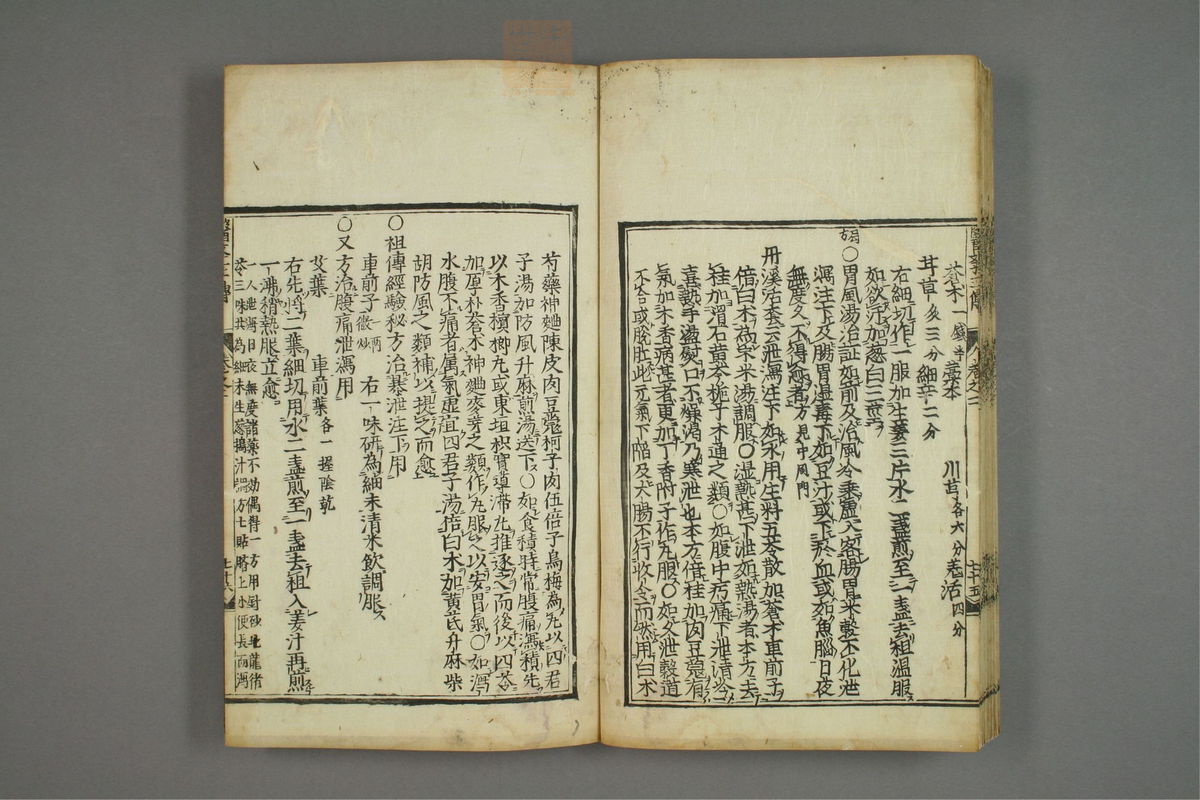 蒼朮一錢半 藁本 川芎各六分 羌活四分
甘草炙三分 細辛二分
右細切作一服加生姜三片水二盞煎至一盞去粗温服
如欲汗加葱白三莖
局方
○胃風湯治証如前及治風冷乗虚入客腸胃米穀不化泄
瀉注下及腸胃湿毒下如豆汁或下瘀血或如魚腦日夜
無度久不得愈者方見中風門
丹溪活套云泄瀉注下如水用生料五苓散加蒼朮車前子
倍白朮為末米湯調服○湿熱甚下泄如熱湯者本方去
桂加滑石黄芩梔子木通之類○如腹中疼痛下泄清冷
喜熱手盪熨口不燥渇乃寒泄也本方倍桂加肉豆蔲有
氣加木香病甚者更加丁香附子作丸服○如久泄穀道
不合或脱肛此元氣下陥及大腸不行收令而然用白朮
芍藥神麯陳皮肉豆蔲柯子肉伍倍子烏梅為丸以四君
子湯加防風升麻煎湯送下○如食積時常腹痛瀉積先
以木香檳榔丸或東垣枳實導滯丸推逐之而後以四苓
加厚朴蒼朮神麯麥芽之類作丸服之以安胃氣○如瀉
水腹不痛者属氣虚宜四君子湯倍白朮加黄茋升麻柴
胡防風之類補以提之而愈
○祖傳經驗秘方治暴泄注下用
車前子一兩微炒 右一味研為細末清米飲調服
○又方治腹痛泄瀉用
艾葉 車前葉各一握陰乾
右先將二葉細切用水二盞煎至一盞去粗入姜汁再煎
一沸稍熱服立愈
一人泄瀉日夜無度諸薬不効偶得一方用針砂地龍猪
苓三味共為細末生葱搗汁調方七貼臍上小便長而瀉